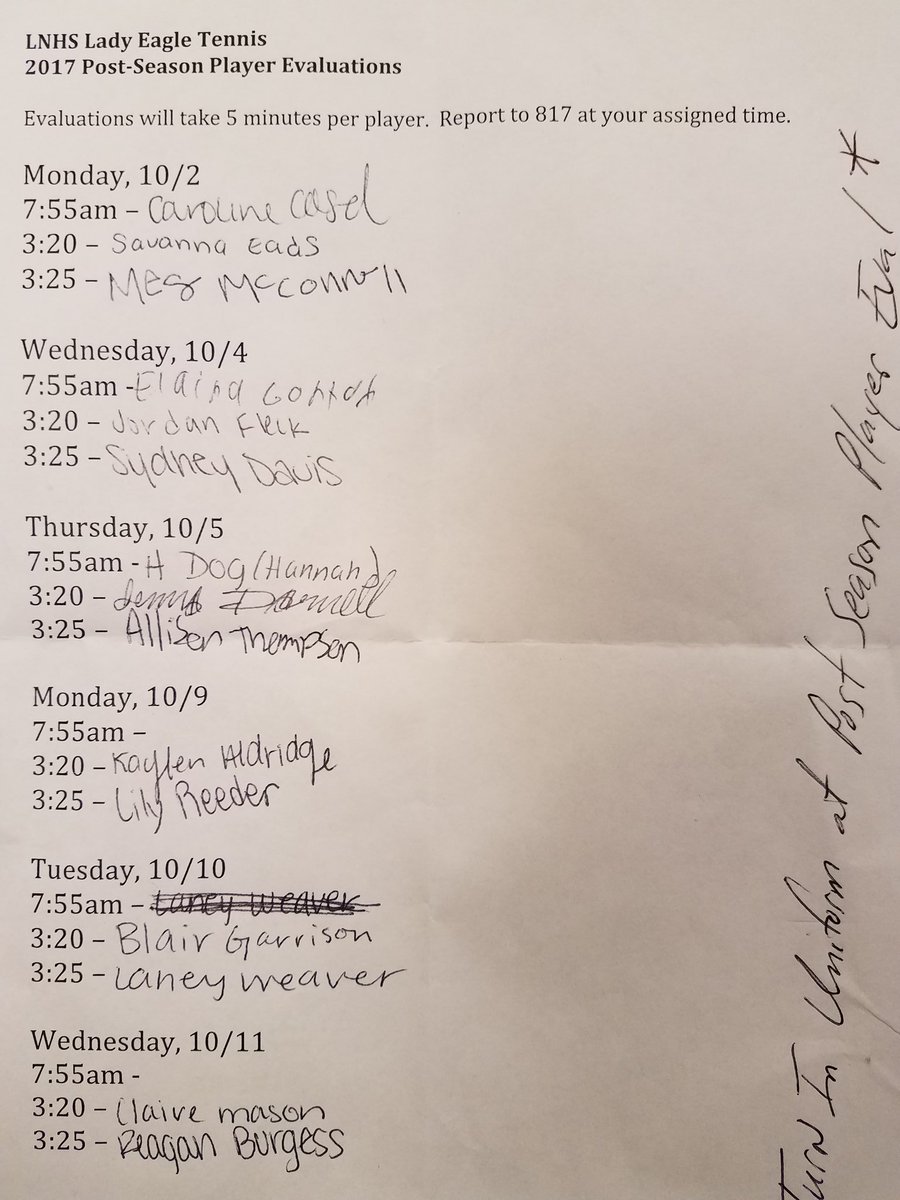 LNHS Lady Eagle Tennis
2017 Post-Season Player Evaluations
Evaluations will take 5 minutes per player. Report to 817 at your assigned time.
Monday, 10/2
7:55am – Caroline Casel
3:20 – Savanna Eads
3:25 – Meg McConnell
Wednesday, 10/4
7:55am - Elaina
3:20 – Jordan Fleik
3:25 – Sydney Davis
Thursday, 10/5
7:55am - H Dog (Hannah)
3:20 – Darnell
3:25 – Allison Thompson
Monday, 10/9
7:55am –
3:20 – Kaylen Aldridge
3:25 – Lily Reeder
Tuesday, 10/10
7:55am – Laney Weaver
3:20 – Blair Garrison
3:25 – Laney weaver
Wednesday, 10/11
7:55am -
3:20 – Claire mason
3:25 – Reagan Burgess
Turn In Uniform at Post Season Player Eval *